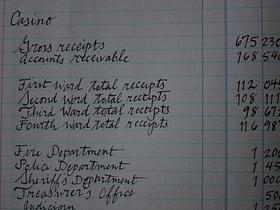 Casino
Gross receipts 675 230
Accounts receivable 768 540
First Ward total receipts 112 04
Second Ward total receipts 108 11
Third Ward total receipts 98 67
Fourth Ward total receipts 116 98
Fire Department 1 20
Police Department 1 45
Sheriff's Department 1 00
Treasurer's Office 50